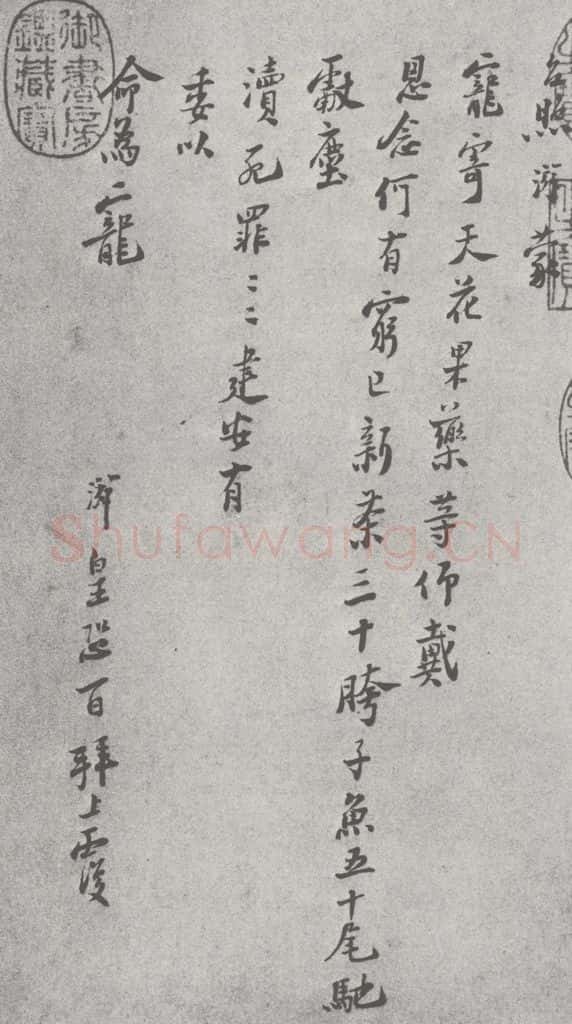 台照 蒙
寵寄天花果藥等仰戴
恩念何有窮已新茶三十胯子魚五十尾馳
獻塵
瀆死罪〻〻建安有
委以
命為寵
皇恐百拜上覆
御書房鑑藏寶
Shufawang.CN